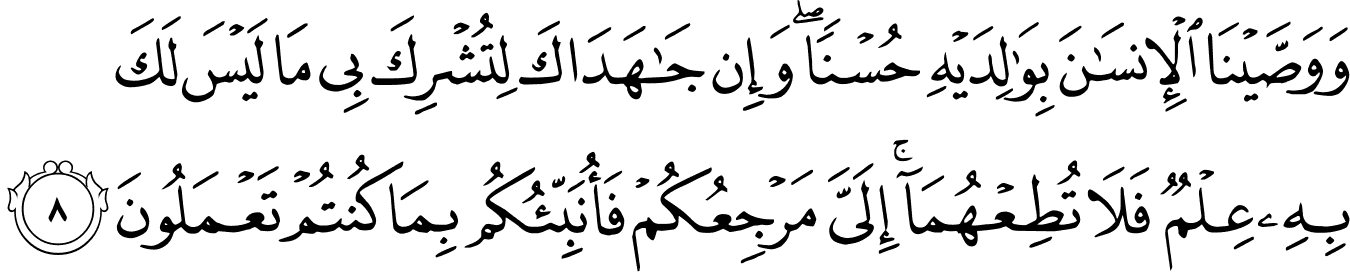 وَوَصَّيْنَا ٱلْإِنسَـٰنَ بِوَٰلِدَيْهِ حُسْنًا ۖ وَإِن جَـٰهَدَاكَ لِتُشْرِكَ بِى مَا لَيْسَ لَكَ
بِهِۦ عِلْمٌ فَلَا تُطِعْهُمَآ ۚ إِلَىَّ مَرْجِعُكُمْ فَأُنَبِّئُكُم بِمَا كُنتُمْ تَعْمَلُونَ ٨